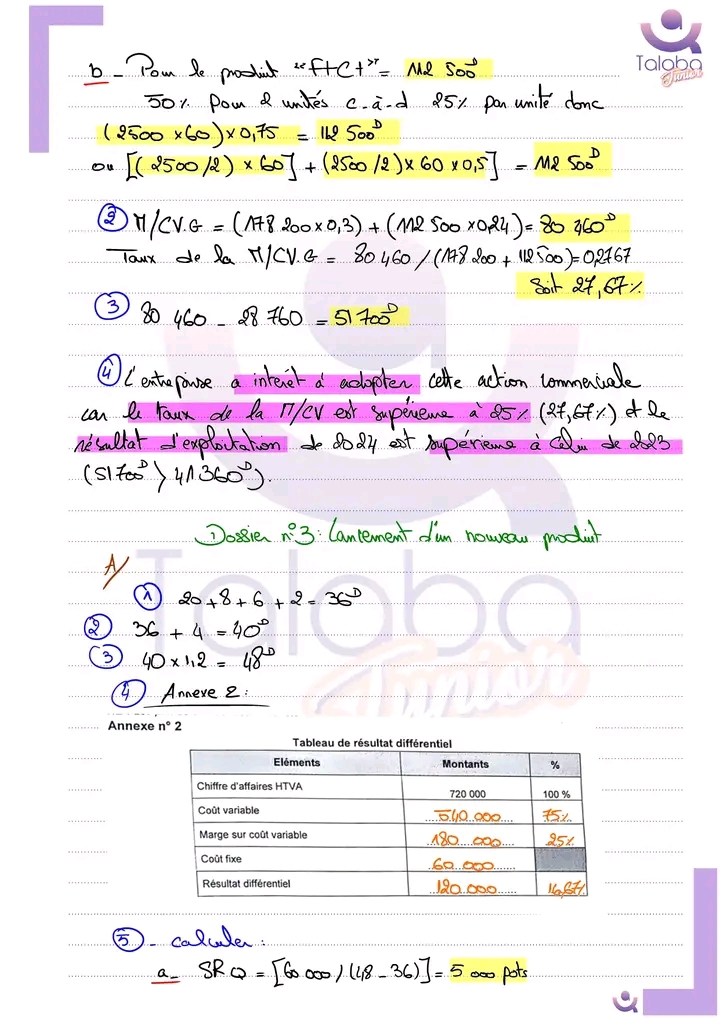 Talaba
Junior
b - Pour le produit "F+C+" = 112 500ᴰ
50% pour 2 unités c-à-d 25% par unité donc
(2500 x60) x 0,75 = 112 500ᴰ
ou [(2500/2) x 60] + (2500/2) x 60 x 0,5] = 112 500ᴰ
② M/CV.G = (178 200 x 0,3) + (112 500 x 0,24) = 80 460ᴰ
Taux de la M/CV.G = 80 460 / (178 200 + 112 500) = 0,2767
Soit 27,67%
③ 80 460 - 28 760 = 51 700ᴰ
④ L'entreprise a intérêt à adopter cette action commerciale
car le taux de la M/CV est supérieure à 25% (27,67%) et le
résultat d'exploitation de 2024 est supérieure à celui de 2023
(51 700ᴰ > 41 360ᴰ).
Dossier n°3: Lancement d'un nouveau produit
A/
① 20 + 8 + 6 + 2 = 36ᴰ
② 36 + 4 = 40ᴰ
③ 40 x 1,2 = 48ᴰ
④ Annexe 2:
Annexe n° 2
Tableau de résultat différentiel
Eléments Montants %
Chiffre d'affaires HTVA 720 000 100 %
Coût variable 540 000 75%
Marge sur coût variable 180 000 25%
Coût fixe 60 000
Résultat différentiel 120 000 16,67%
⑤ - calculer :
a - SRQ = [60 000 / (48 - 36)] = 5 000 pots
Talaba
Junior